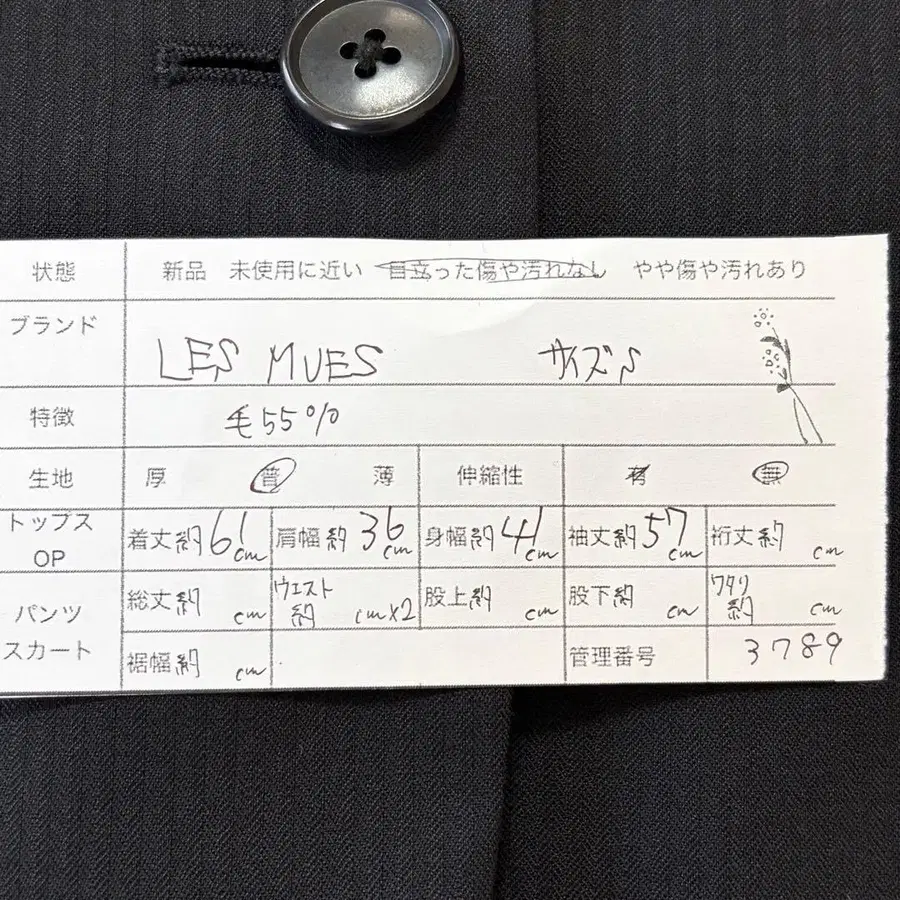 状態 新品 未使用に近い 目立った傷や汚れなし やや傷や汚れあり
ブランド LES MUES サイズS
特徴 毛55%
生地 厚 普 薄 伸縮性 有 無
トップス OP 着丈約61cm 肩幅約36cm 身幅約41cm 袖丈約57cm 裄丈約 cm
パンツ スカート 総丈約 cm ウエスト約 cm×2 股上約 cm 股下約 cm ワタリ約 cm
裾幅約 cm 管理番号 3789